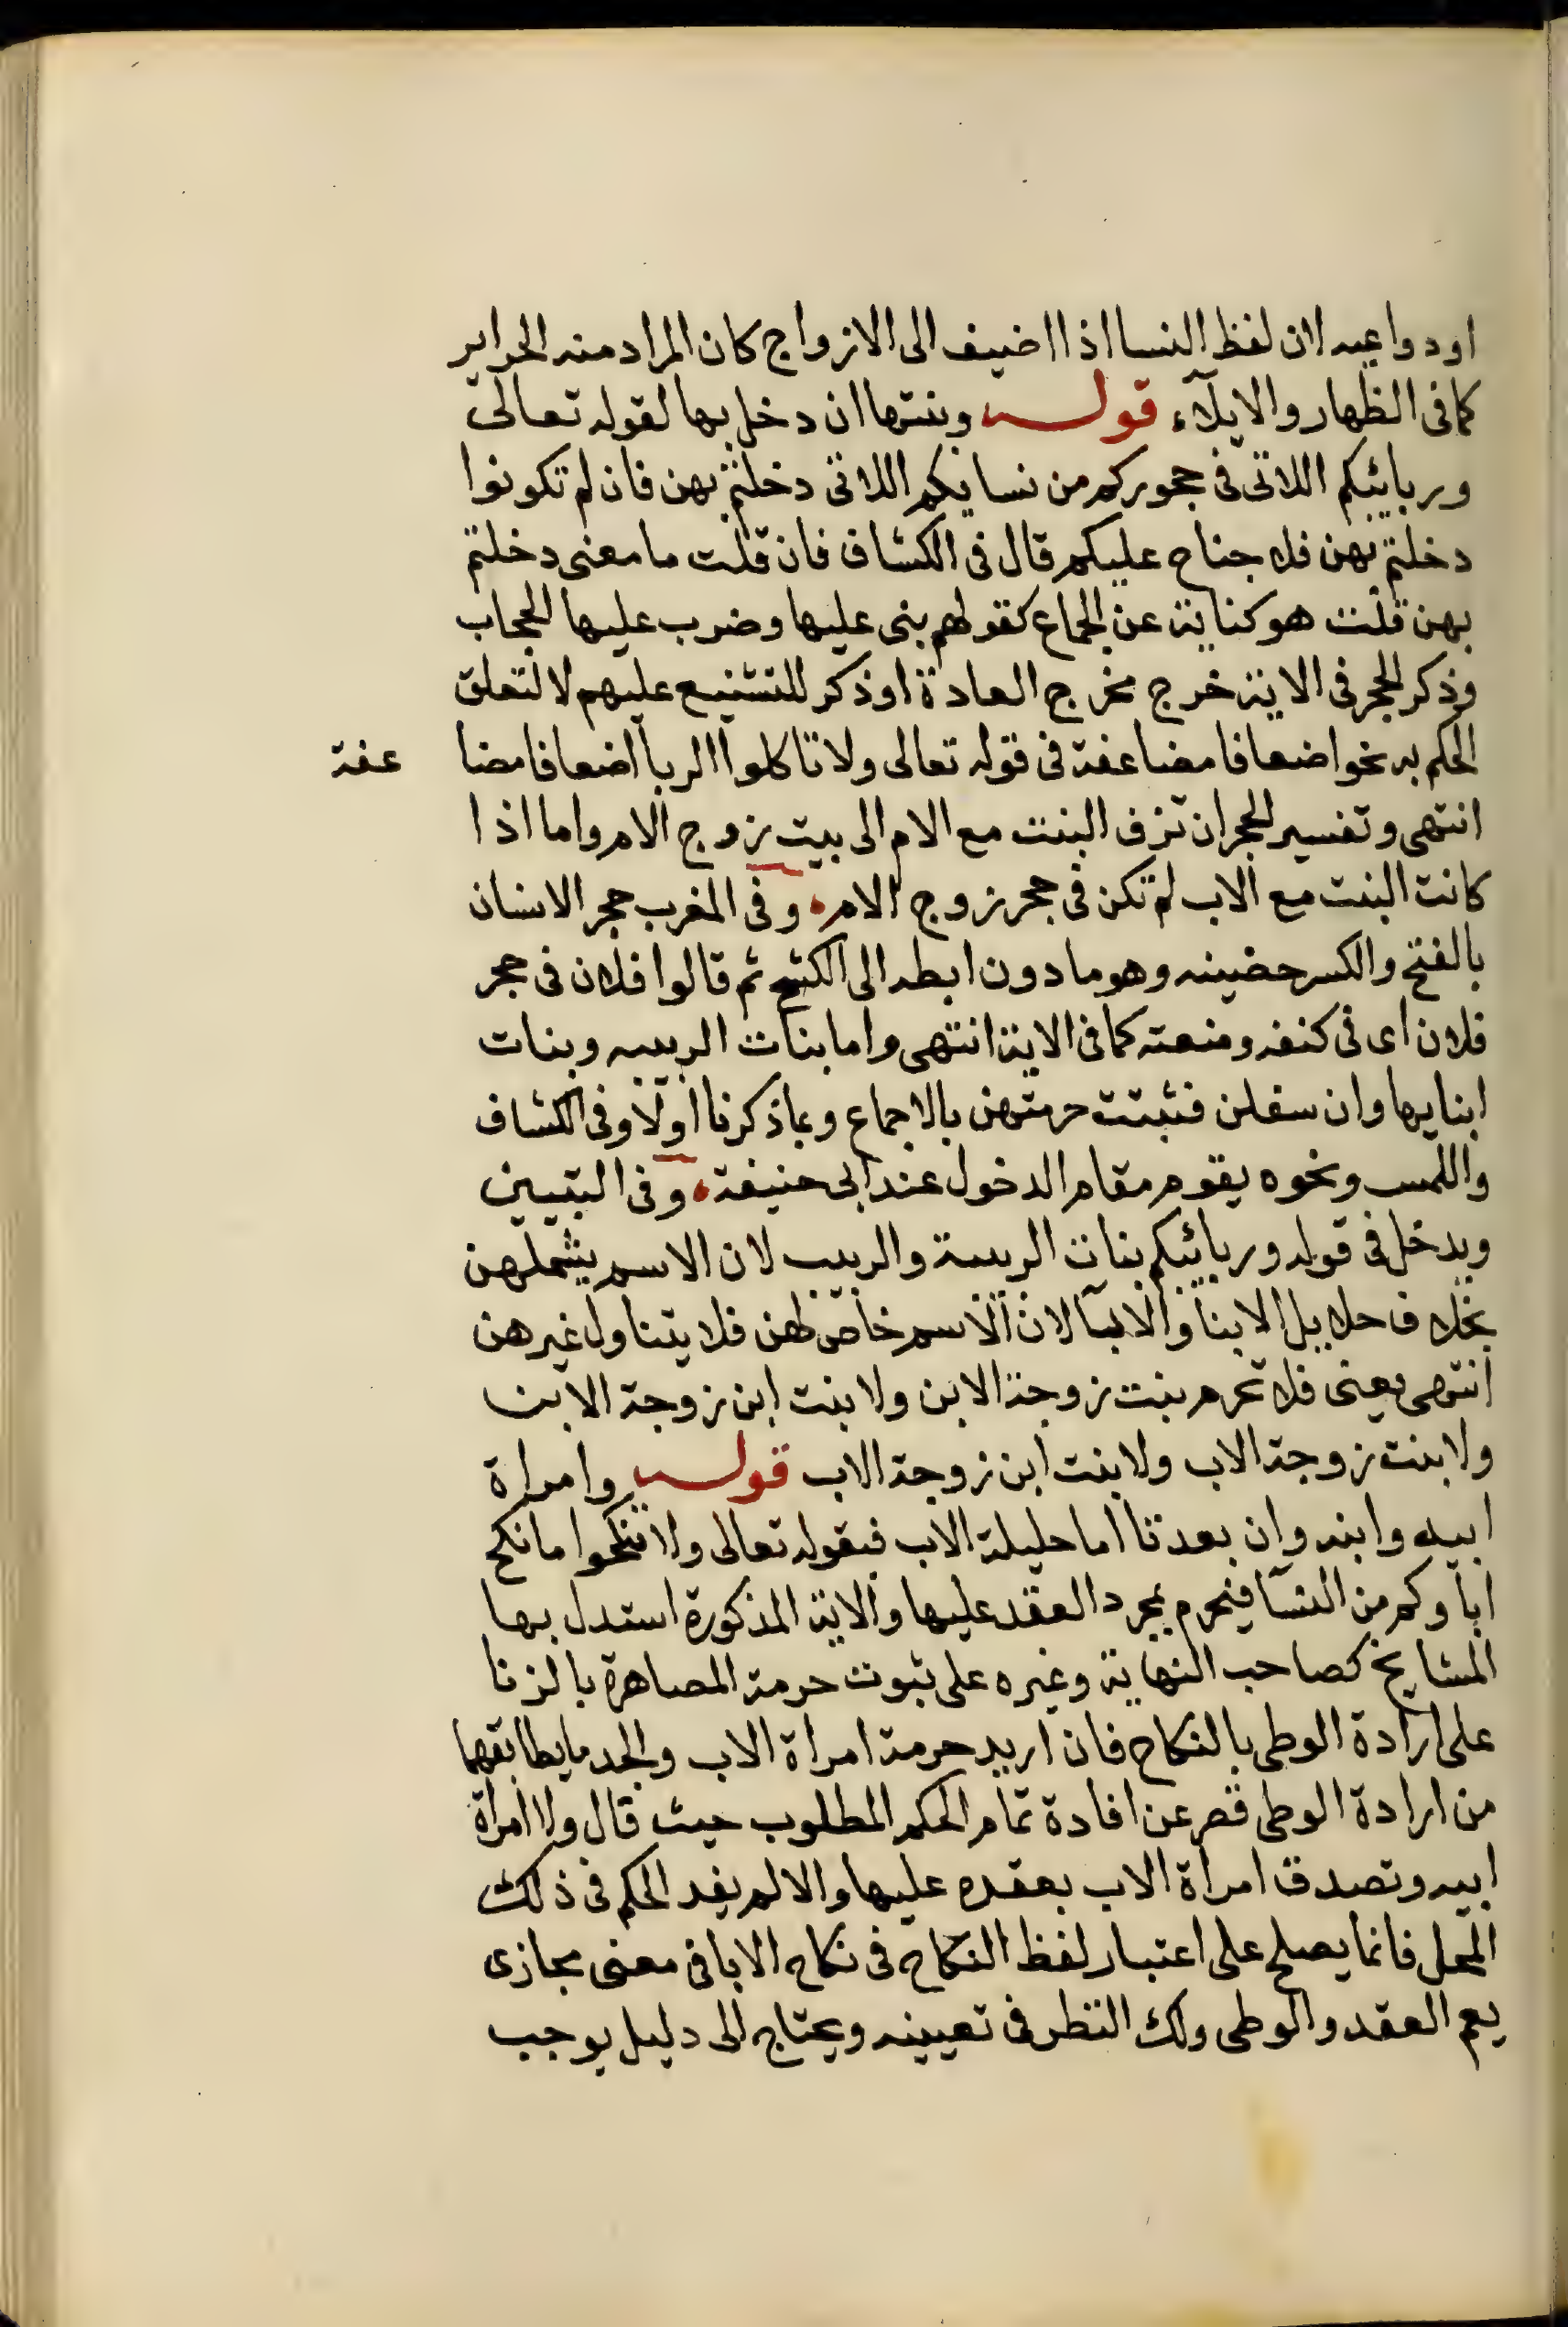 او دواعيه لان لفظ النسا اذا اضيف الى الازواج كان المراد منه الحراير
كما فى الظهار والايلآء قوله وبنتها ان دخل بها لقوله تعالى
وربائبكم اللاتى فى حجوركم من نسايكم اللاتى دخلتم بهن فان لم تكونوا
دخلتم بهن فلا جناح عليكم قال فى الكشاف فان قلت ما معنى دخلتم
بهن قلت هو كناية عن الجماع كقولهم بنى عليها وضرب عليها الحجاب
وذكر الحجر فى الاية خرج مخرج العادة او ذكر للتشنيع عليهم لا لتعلق
الحكم به نحو اضعافا مضاعفة فى قوله تعالى ولا تاكلوا الربا اضعافا مضا عفة
انتهى وتفسير الحجر ان تزف البنت مع الام الى بيت زوج الام واما اذا
كانت البنت مع الاب لم تكن فى حجر زوج الام وفى المغرب حجر الانسان
بالفتح والكسر حضينه وهو ما دون ابطه الى الكشح ثم قالوا فلان فى حجر
فلان اى فى كنفه ومنعته كما فى الاية انتهى واما بنات الربيبه وبنات
ابنايها وان سفلن فثبتت حرمتهن بالاجماع وبما ذكرنا اولا وفى الكشاف
واللمس ونحوه يقوم مقام الدخول عند ابى حنيفة وفى التبيين
ويدخل فى قوله وربائبكم بنات الربيبة والربيب لان الاسم يشملهن
بخلاف حلايل الابنا والابآ لان الاسم خاص لهن فلا يتناول غيرهن
انتهى يعنى فلا تحرم بنت زوجة الابن ولا بنت ابن زوجة الابن
ولا بنت زوجة الاب ولا بنت ابن زوجة الاب قوله وامراة
ابيه وابنه وان بعدتا اما حليلة الاب فبقوله تعالى ولا تنكحوا ما نكح
اباوكم من النسآ فيحرم بمجرد العقد عليها والاية المذكورة استدل بها
المشايخ كصاحب النهاية وغيره على ثبوت حرمة المصاهرة بالزنا
على ارادة الوطى بالنكاح فان اريد حرمة امراة الاب والجد ما يطابقهما
من ارادة الوطى قصر عن افادة تمام الحكم المطلوب حيث قال ولا امراة
ابيه وتصدق امراة الاب بعقده عليها والا لم يفد الحكم فى ذلك
المحل فانما يصلح على اعتبار لفظ النكاح فى نكاح الابا فى معنى مجازى
يعم العقد والوطى ولك النظر فى تعيينه ويحتاج الى دليل يوجب